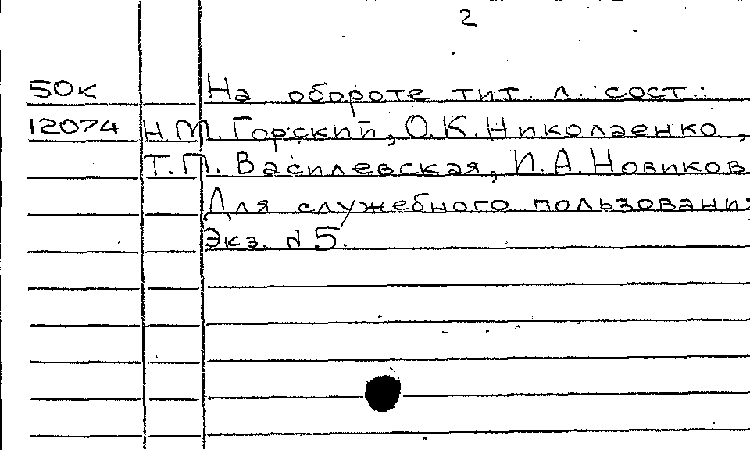 2
50к На обороте тит. л. сост.:
12074 Н.М. Горский, О.К. Николаенко,
Т.П. Василевская, И.А. Новиков
Для служебного пользовани
Экз. № 5.